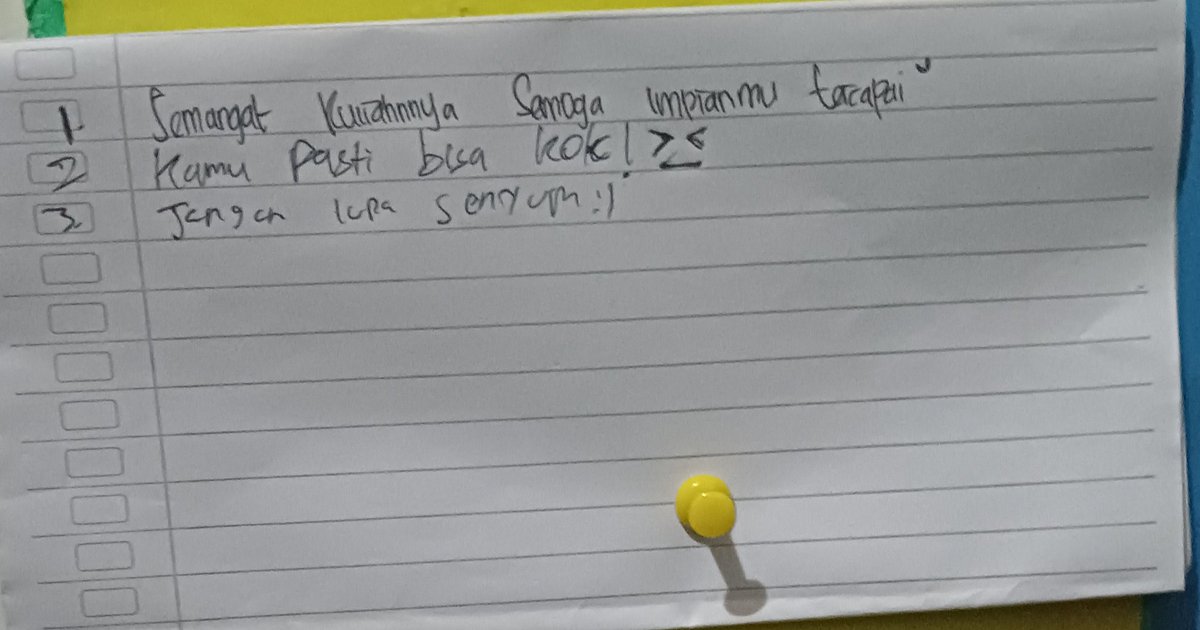 1. Semangat Kuliahnnya Semoga impianmu tercapai
2 Kamu Pasti bisa kok! >_<
3. Jangan lupa senyum :)